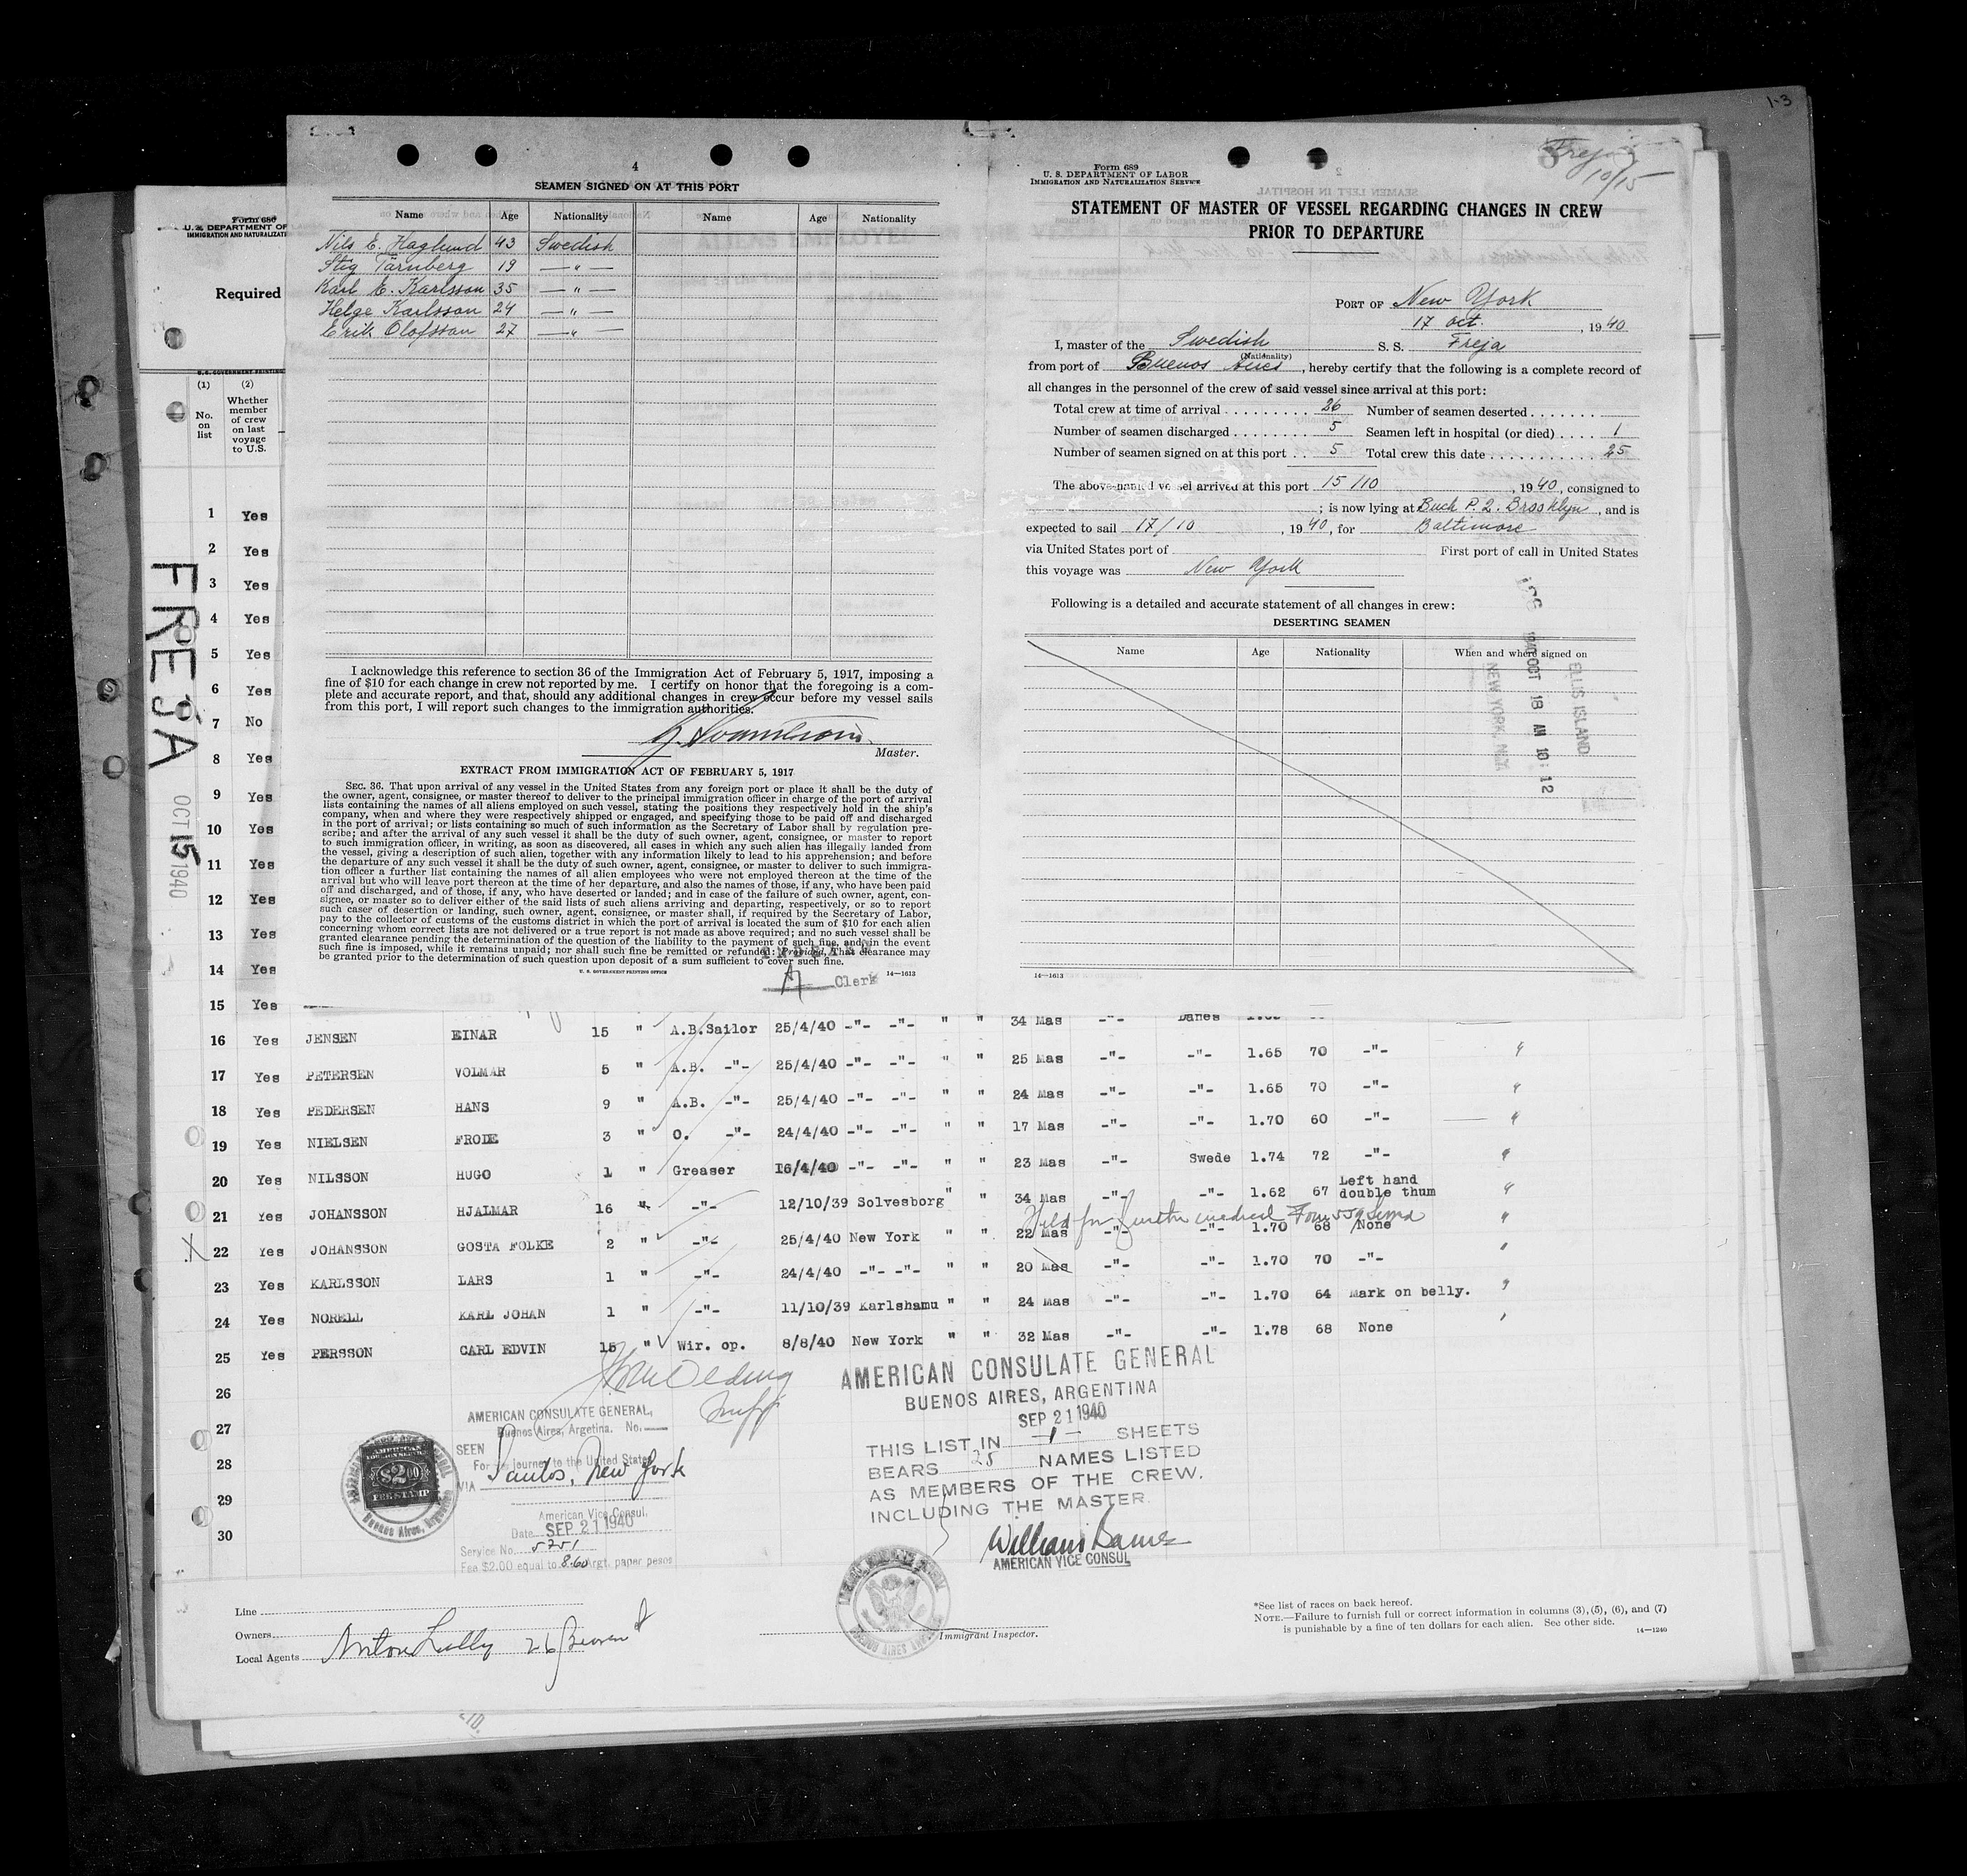 1-3
4
SEAMEN SIGNED ON AT THIS PORT
Name Age Nationality Name Age Nationality
Nils E. Haglund 43 Swedish
Stig Tärnberg 19 — " —
Karl E. Karlsson 35 — " —
Helge Karlsson 24 — " —
Erik Olofsson 27 — " —
I acknowledge this reference to section 36 of the Immigration Act of February 5, 1917, imposing a
fine of $10 for each change in crew not reported by me. I certify on honor that the foregoing is a com-
plete and accurate report, and that, should any additional changes in crew occur before my vessel sails
from this port, I will report such changes to the immigration authorities.
Master.
EXTRACT FROM IMMIGRATION ACT OF FEBRUARY 5, 1917
SEC. 36. That upon arrival of any vessel in the United States from any foreign port or place it shall be the duty of
the owner, agent, consignee, or master thereof to deliver to the principal immigration officer in charge of the port of arrival
lists containing the names of all aliens employed on such vessel, stating the positions they respectively hold in the ship's
company, when and where they were respectively shipped or engaged, and specifying those to be paid off and discharged
in the port of arrival; or lists containing so much of such information as the Secretary of Labor shall by regulation pre-
scribe; and after the arrival of any such vessel it shall be the duty of such owner, agent, consignee, or master to report
to such immigration officer, in writing, as soon as discovered, all cases in which any such alien has illegally landed from
the vessel, giving a description of such alien, together with any information likely to lead to his apprehension; and before
the departure of any such vessel it shall be the duty of such owner, agent, consignee, or master to deliver to such immigra-
tion officer a further list containing the names of all alien employees who were not employed thereon at the time of the
arrival but who will leave port thereon at the time of her departure, and also the names of those, if any, who have been paid
off and discharged, and of those, if any, who have deserted or landed; and in case of the failure of such owner, agent, con-
signee, or master so to deliver either of the said lists of such aliens arriving and departing, respectively, or so to report
such cases of desertion or landing, such owner, agent, consignee, or master shall, if required by the Secretary of Labor,
pay to the collector of customs of the customs district in which the port of arrival is located the sum of $10 for each alien
concerning whom correct lists are not delivered or a true report is not made as above required; and no such vessel shall be
granted clearance pending the determination of the question of the liability to the payment of such fine, and in the event
such fine is imposed, while it remains unpaid; nor shall such fine be remitted or refunded: Provided, That clearance may
be granted prior to the determination of such question upon deposit of a sum sufficient to cover such fine.
U. S. GOVERNMENT PRINTING OFFICE 14—1613
Clerk
Freja
10/15
Form 689
U. S. DEPARTMENT OF LABOR
IMMIGRATION AND NATURALIZATION SERVICE
STATEMENT OF MASTER OF VESSEL REGARDING CHANGES IN CREW
PRIOR TO DEPARTURE
PORT OF New York
17 oct. , 1940
I, master of the Swedish S. S. Freja
(Nationality)
from port of Buenos Aires , hereby certify that the following is a complete record of
all changes in the personnel of the crew of said vessel since arrival at this port:
Total crew at time of arrival 26 Number of seamen deserted
Number of seamen discharged 5 Seamen left in hospital (or died) 1
Number of seamen signed on at this port 5 Total crew this date 25
The above-named vessel arrived at this port 15/10 , 1940, consigned to
; is now lying at Buch P. 2. Brooklyn , and is
expected to sail 17/10 , 1940, for Baltimore
via United States port of First port of call in United States
this voyage was New York
Following is a detailed and accurate statement of all changes in crew:
DESERTING SEAMEN
Name Age Nationality When and where signed on
ELLIS ISLAND
OCT 18 AM 10 12
NEW YORK, N.Y.
14—1613
Form 680
U. S. DEPARTMENT OF
IMMIGRATION AND NATURALIZATI
Required
(1) (2)
No. on list
Whether member of crew on last voyage to U.S.
FREJA
OCT 15 1940
1 Yes
2 Yes
3 Yes
4 Yes
5 Yes
6 Yes
7 No
8 Yes
9 Yes
10 Yes
11 Yes
12 Yes
13 Yes
14 Yes
15 Yes
16 Yes JENSEN EINAR 15 " A.B.Sailor 25/4/40 -"- -"- " " 34 Mas -"- Danes
17 Yes PETERSEN VOLMAR 5 " A.B. -"- 25/4/40 -"- -"- " " 25 Mas -"- -"- 1.65 70 -"-
18 Yes PEDERSEN HANS 9 " A.B. -"- 25/4/40 -"- -"- " " 24 Mas -"- -"- 1.65 70 -"-
19 Yes NIELSEN FRODE 3 " O. -"- 24/4/40 -"- -"- " " 17 Mas -"- -"- 1.70 60 -"-
20 Yes NILSSON HUGO 1 " Greaser 16/4/40 -"- -"- " " 23 Mas -"- Swede 1.74 72 -"-
21 Yes JOHANSSON HJALMAR 16 " -"- 12/10/39 Solvesborg " " 34 Mas -"- -"- 1.62 67 Left hand double thum
Held for further medical Form 559 served
X 22 Yes JOHANSSON GOSTA FOLKE 2 " -"- 25/4/40 New York " " 22 Mas -"- -"- 1.70 68 None
23 Yes KARLSSON LARS 1 " -"- 24/4/40 -"- -"- " " 20 Mas -"- -"- 1.70 70 -"-
24 Yes NORELL KARL JOHAN 1 " -"- 11/10/39 Karlshamu " " 24 Mas -"- -"- 1.70 64 Mark on belly.
25 Yes PERSSON CARL EDVIN 15 " Wir. op. 8/8/40 New York " " 32 Mas -"- -"- 1.78 68 None
26
27
28
29
30
AMERICAN CONSULATE GENERAL,
Buenos Aires, Argetina. No.
SEEN
For the journey to the United States
VIA Santos, New York
American Vice Consul.
Date SEP 21 1940
Service No. 5751
Fee $2.00 equal to 8.60 Argt. paper pesos
AMERICAN
$2.00
FEE STAMP
Buenos Aires, Argen
AMERICAN CONSULATE GENERAL
BUENOS AIRES, ARGENTINA
SEP 21 1940
THIS LIST IN -1- SHEETS
BEARS 25 NAMES LISTED
AS MEMBERS OF THE CREW.
INCLUDING THE MASTER.
William Barnes
AMERICAN VICE CONSUL
Line
Owners
Local Agents
Immigrant Inspector.
*See list of races on back hereof.
NOTE.—Failure to furnish full or correct information in columns (3), (5), (6), and (7)
is punishable by a fine of ten dollars for each alien. See other side.
14—1240